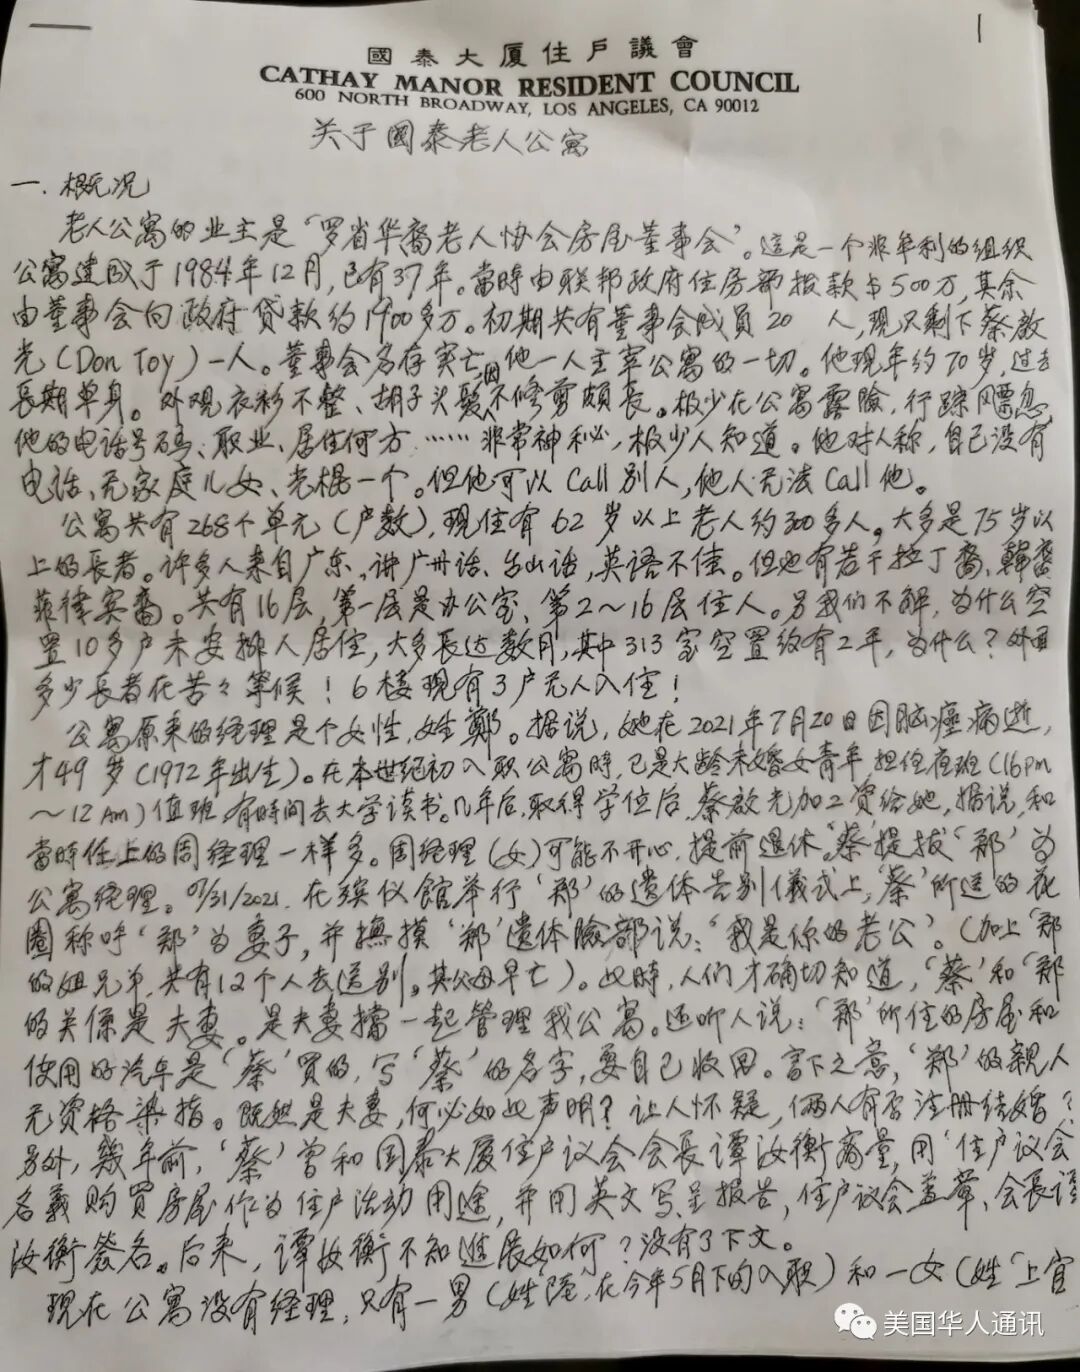 國泰大厦住戶議會
CATHAY MANOR RESIDENT COUNCIL
600 NORTH BROADWAY, LOS ANGELES, CA 90012
关于國泰老人公寓
一. 概况
老人公寓的业主是“罗省华裔老人协会房屋董事会”。这是一个非牟利的组织
公寓建成于1984年12月,已有37年。當時由联邦政府住房部拨款$500万,其余
由董事会向政府贷款约1900多万。初期共有董事会成員20 人,现只剩下蔡啟
光(Don Toy)一人。董事会名存实亡,因他一人主宰公寓的一切。他现年约70岁,过去
長期单身。外观衣衫不整、胡子头髮不修剪頗長。极少在公寓露臉,行踪飄忽
他的电话号码、职业、居住何方……非常神秘,极少人知道。他对人称,自己没有
电话、无家庭儿女、光棍一个。但他可以Call别人,他人无法Call他。
公寓共有268个单元(户数),现住有62岁以上老人约300多人。大多是75岁以
上的長者。许多人来自广东,讲广州话、台山话,英语不佳。但也有若干拉丁裔、韓裔
菲律宾裔。共有16层,第一层是办公室,第2~16层住人。另我们不解,为什么空
置10多户未安排人居住,大多長达数月,其中313室空置约有2年,为什么?外面
多少長者在苦々等候!6楼现有3户无人入住!
公寓原来的经理是个女性,姓鄭。据说,她在2021年7月20日因脑癌病逝,
才49岁(1972年出生)。在本世纪初入职公寓時,已是大龄未婚女青年,担任夜班(16pm
~12Am)值班,有時间去大学读书。几年后,取得学位后,蔡啟光加工资给她,据说,和
當時任上的周经理一样多。周经理(女)可能不开心,提前退休。‘蔡’提拔‘郑’为
公寓经理。07/31/2021.在殡仪館举行‘郑’的遗体告别儀式上,‘蔡’所送的花
圈称呼‘郑’为妻子,并撫摸‘郑’遗体臉部说:“我是你的老公”。(加上‘郑’
的姐兄弟,共有12个人去送别。其父母早亡)。此時,人们才确切知道,‘蔡’和‘郑’
的关係是夫妻。是夫妻擋一起管理我公寓。还听人说:‘郑’所住的房屋和
使用的汽车是‘蔡’買的,写‘蔡’的名字,要自己收回。言下之意,‘郑’的親人
无资格染指。既然是夫妻,何必如此声明?让人怀疑,俩人有否注册结婚?
另外,幾年前,‘蔡’曾和国泰大厦住户议会会長谭汝衡商量,用‘住户议会’
名義购買房屋作为住户活动用途,并用英文写呈报告,住户议会盖章、会長谭
汝衡簽名。后来,譚汝衡不知進展如何?没有了下文。
现在公寓没有经理,只有一男(姓‘陸’,在今年5月下旬入职)和一女(姓‘上官
美国华人通讯